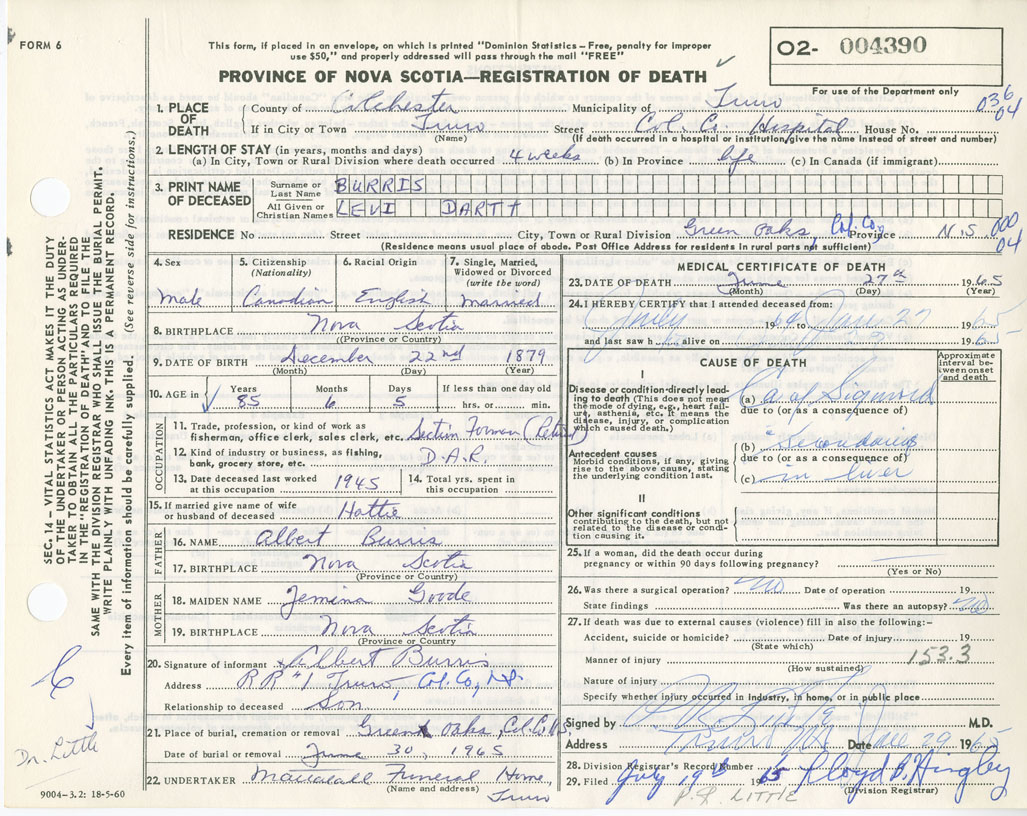 FORM 6
This form, if placed in an envelope, on which is printed "Dominion Statistics – Free, penalty for improper
use $50," and properly addressed will pass through the mail "FREE"
PROVINCE OF NOVA SCOTIA—REGISTRATION OF DEATH
O2- 004390
For use of the Department only
036
04
1. PLACE OF DEATH
County of Colchester Municipality of Truro
If in City or Town Truro Street Col. Co. Hospital House No.
(Name) (If death occurred in a hospital or institution, give the name instead of street and number)
2. LENGTH OF STAY (in years, months and days)
(a) In City, Town or Rural Division where death occurred 4 weeks (b) In Province life (c) In Canada (if immigrant)
3. PRINT NAME OF DECEASED
Surname or Last Name BURRIS
All Given or Christian Names LEVI DARTA
RESIDENCE No Street City, Town or Rural Division Green Oaks, Col. Co, Province N.S
(Residence means usual place of abode. Post Office Address for residents in rural parts not sufficient)
000
04
4. Sex
Male
5. Citizenship (Nationality)
Canadian
6. Racial Origin
English
7. Single, Married, Widowed or Divorced (write the word)
Married
8. BIRTHPLACE Nova Scotia
(Province or Country)
9. DATE OF BIRTH December 22nd 1879
(Month) (Day) (Year)
10. AGE in Years 85 Months 6 Days 5 If less than one day old hrs. or min.
OCCUPATION
11. Trade, profession, or kind of work as
fisherman, office clerk, sales clerk, etc. Section Forman (Retired)
12. Kind of industry or business, as fishing,
bank, grocery store, etc. D.A.R.
13. Date deceased last worked at this occupation 1945
14. Total yrs. spent in this occupation
15. If married give name of wife
or husband of deceased Hattie
FATHER
16. NAME Albert Burris
17. BIRTHPLACE Nova Scotia
(Province or Country)
MOTHER
18. MAIDEN NAME Jemina Goode
19. BIRTHPLACE Nova Scotia
(Province or Country)
20. Signature of informant Albert Burris
Address RR #1 Truro, Col. Co, N.S.
Relationship to deceased Son
21. Place of burial, cremation or removal Green Oaks, Col. Co. N.S.
Date of burial or removal June 30, 1965
22. UNDERTAKER Funeral Home,
(Name and address) Truro
MEDICAL CERTIFICATE OF DEATH
23. DATE OF DEATH June 27th 1965
(Month) (Day) (Year)
24. I HEREBY CERTIFY that I attended deceased from:
July 1964 27 1965
and last saw h alive on 1965
CAUSE OF DEATH
Approximate interval between onset and death
I
Disease or condition directly leading
to death (This does not mean
the mode of dying, e.g., heart failure,
asthenia, etc. It means the
disease, injury, or complication
which caused death.)
(a) Ca of Sigmoid
due to (or as a consequence of)
Antecedent causes
Morbid conditions, if any, giving
rise to the above cause, stating
the underlying condition last.
(b) Secondaries
due to (or as a consequence of)
(c) in liver
II
Other significant conditions
contributing to the death, but not
related to the disease or condition
causing it.
25. If a woman, did the death occur during
pregnancy or within 90 days following pregnancy?
(Yes or No)
26. Was there a surgical operation? No Date of operation 19
State findings Was there an autopsy? No
27. If death was due to external causes (violence) fill in also the following:–
Accident, suicide or homicide? Date of injury 19
(State which)
Manner of injury 153.3
(How sustained)
Nature of injury
Specify whether injury occurred in industry, in home, or in public place
Signed by M.D.
Address Truro NS Date June 29 1965
28. Division Registrar's Record Number
29. Filed July 19th 1965 Lloyd B. Hingley
(Division Registrar)
P.R. LITTLE
SEC. 14 – VITAL STATISTICS ACT MAKES IT THE DUTY
OF THE UNDERTAKER OR PERSON ACTING AS UNDERTAKER
TO OBTAIN ALL THE PARTICULARS REQUIRED
IN THE "REGISTRATION OF DEATH" AND TO FILE THE
SAME WITH THE DIVISION REGISTRAR WHO SHALL ISSUE THE BURIAL PERMIT.
WRITE PLAINLY WITH UNFADING INK – THIS IS A PERMANENT RECORD.
Every item of information should be carefully supplied. (See reverse side for instructions.)
Dr. Little
9004–3.2: 18-5-60